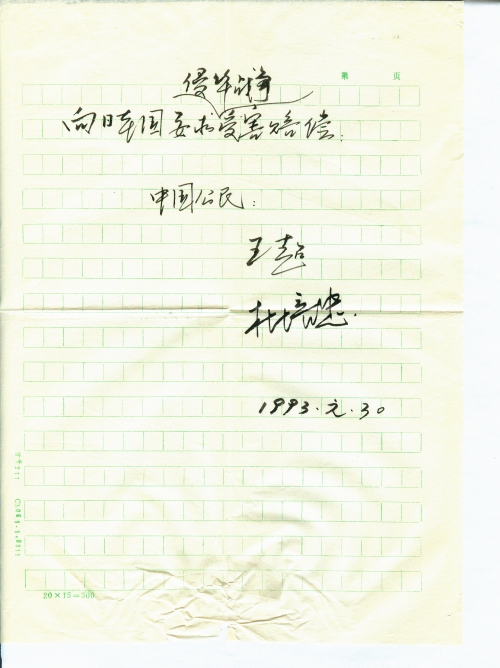 第 页
侵华战争
向日本国要求受害赔偿：
中国公民：
王喆
杜培忠
1993.元.30
20×15=300